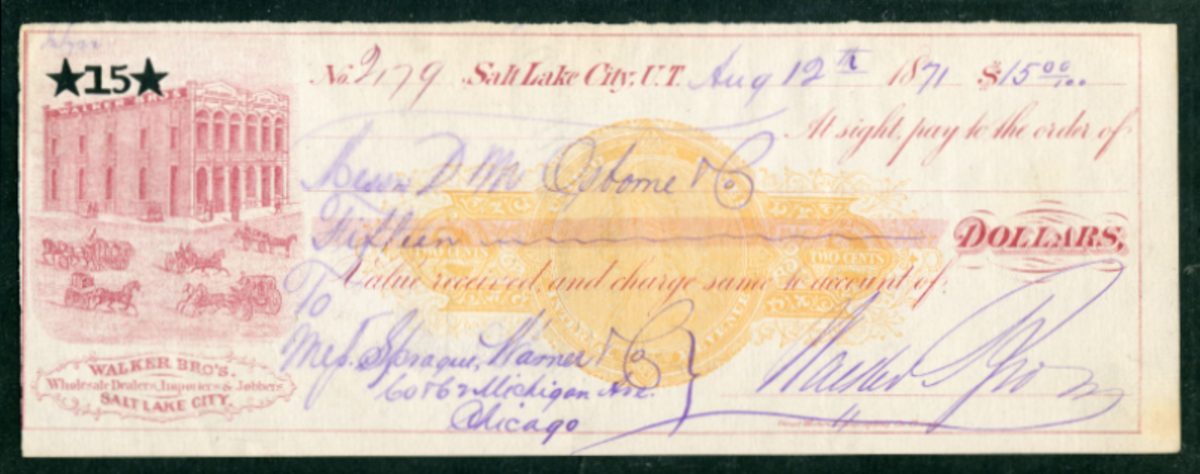 ★15★
No. 2179 Salt Lake City, U.T. Aug 12th 1871 $15 00/100
At sight, pay to the order of
Messrs D. M. Osborne & Co
Fifteen DOLLARS,
TWO CENTS TWO CENTS
Value received, and charge same to account of
To
Mess. Sprague, Warner & Co
60 & 62 Michigan Ave.
Chicago
Walker Bros
WALKER BRO'S.
Wholesale Dealers, Importers & Jobbers.
SALT LAKE CITY.